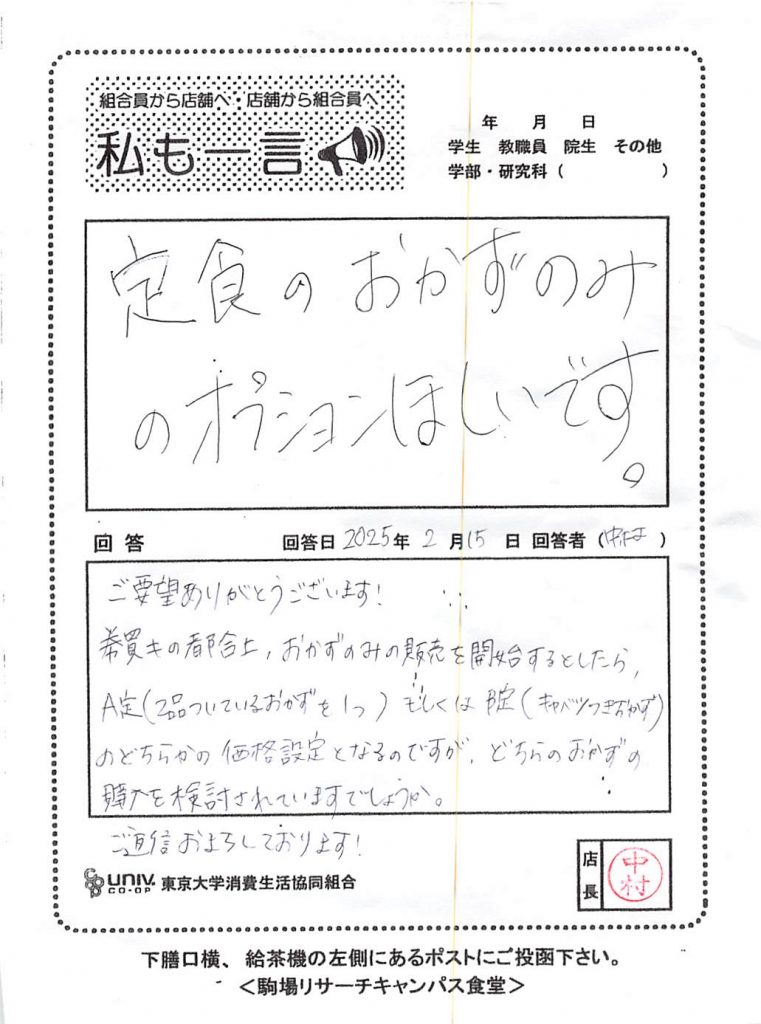 組合員から店舗へ・店舗から組合員へ
私も一言
年 月 日
学生 教職員 院生 その他
学部・研究科（ ）
定食のおかずのみ
のオプションほしいです。
回答 回答日 2025年 2月 15日 回答者（中村）
ご要望ありがとうございます!
券買キの都合上, おかずのみの販売を開始するとしたら,
A定(2品ついているおかずを1つ) もしくは B定(キャベツつきおかず)
のどちらかの価格設定となるのですが, どちらのおかずの
購入を検討されていますでしょうか。
ご返信おまちしております!
UNIV. CO-OP 東京大学消費生活協同組合
店長 中村
下膳口横、給茶機の左側にあるポストにご投函下さい。
＜駒場リサーチキャンパス食堂＞